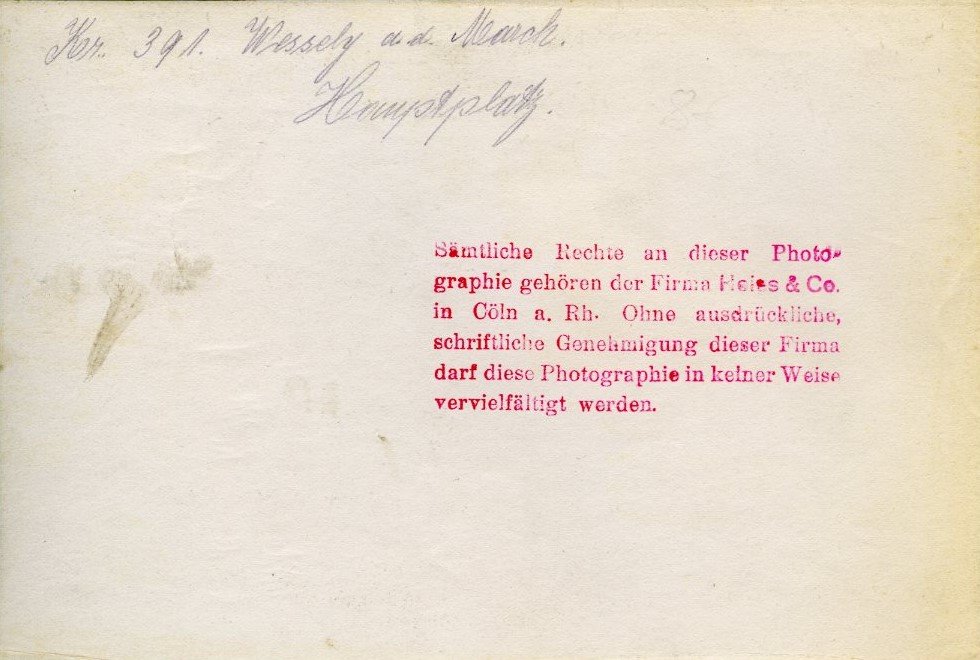 Kr. 391. Wessely a.d. March.
Hauptplatz.
Sämtliche Rechte an dieser Photo-
graphie gehören der Firma Heiss & Co.
in Cöln a. Rh. Ohne ausdrückliche,
schriftliche Genehmigung dieser Firma
darf diese Photographie in keiner Weise
vervielfältigt werden.